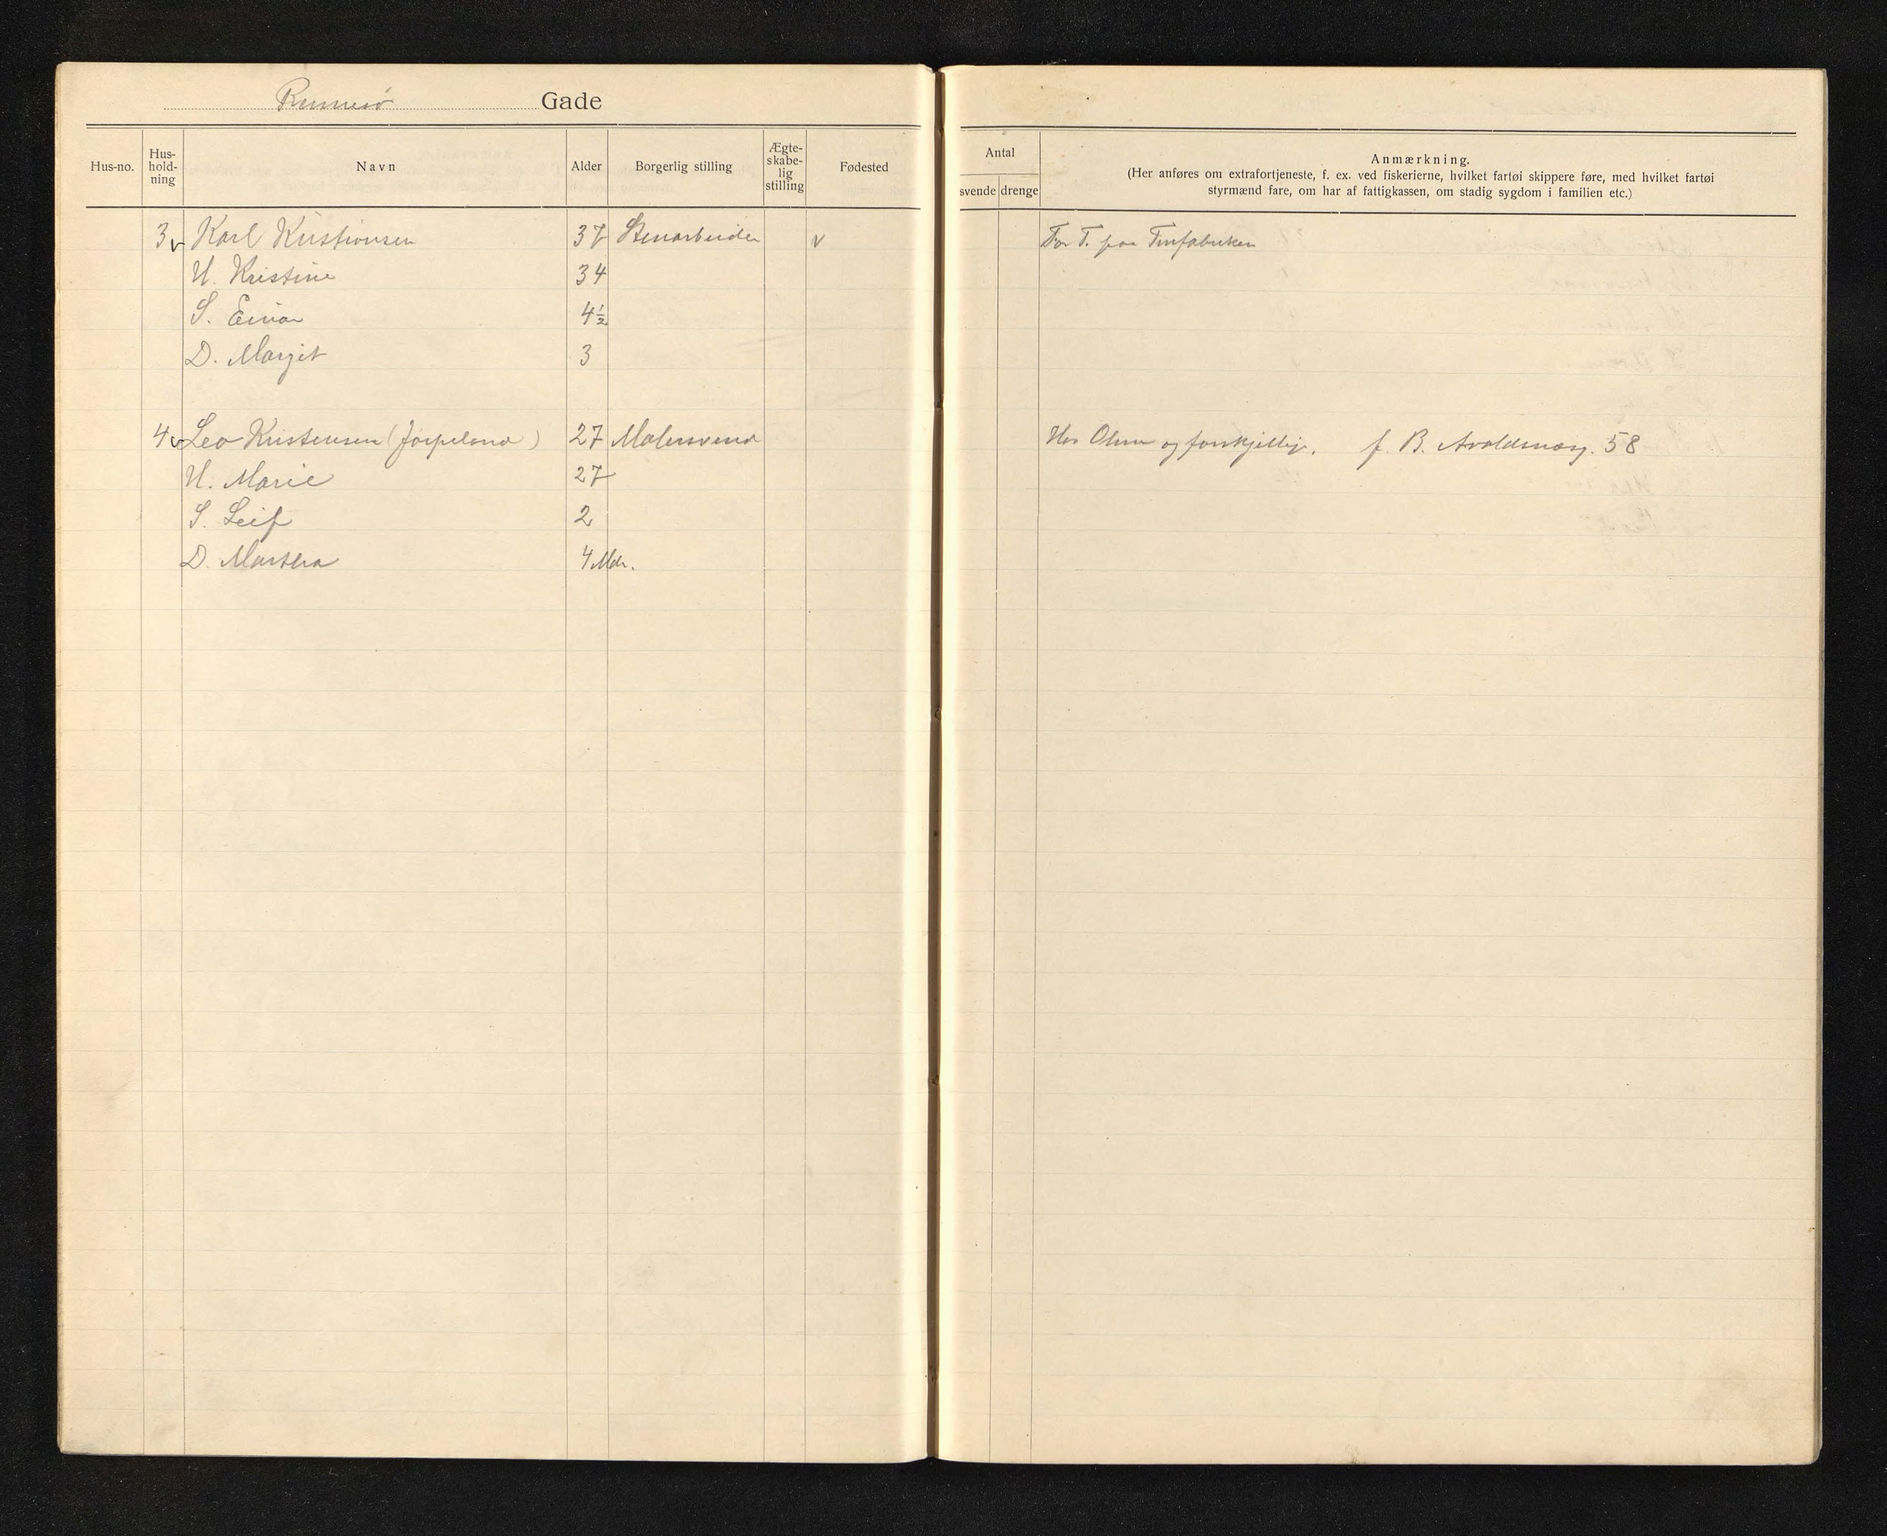 Rennesö Gade
Hus-no. Hus-hold-ning Navn Alder Borgerlig stilling Ægte-skabe-lig stilling Fødested
Antal svende drenge
Anmærkning.
(Her anføres om extrafortjeneste, f. ex. ved fiskerierne, hvilket fartøi skippere føre, med hvilket fartøi
styrmænd fare, om har af fattigkassen, om stadig sygdom i familien etc.)
3 v Karl Kristiansen 37 Stenarbeider v For T. paa Tinfabriken
H. Kristine 34
S. Einar 4 1/2
D. Margit 3
4 v Leo Kristensen (Jørpeland) 27 Malersvend Hos Olsen og forskjellige. f. B. Avaldsnæsg. 58
H. Marie 27
S. Leif 2
D. Martha 4 Mdr.